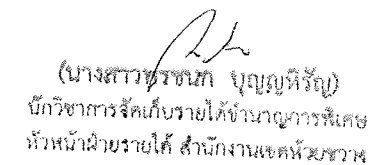 (นางสาวพรชนก บุญญหิรัญ)
นักวิชาการจัดเก็บรายได้ชำนาญการพิเศษ
หัวหน้าฝ่ายรายได้ สำนักงานเขตห้วยขวาง